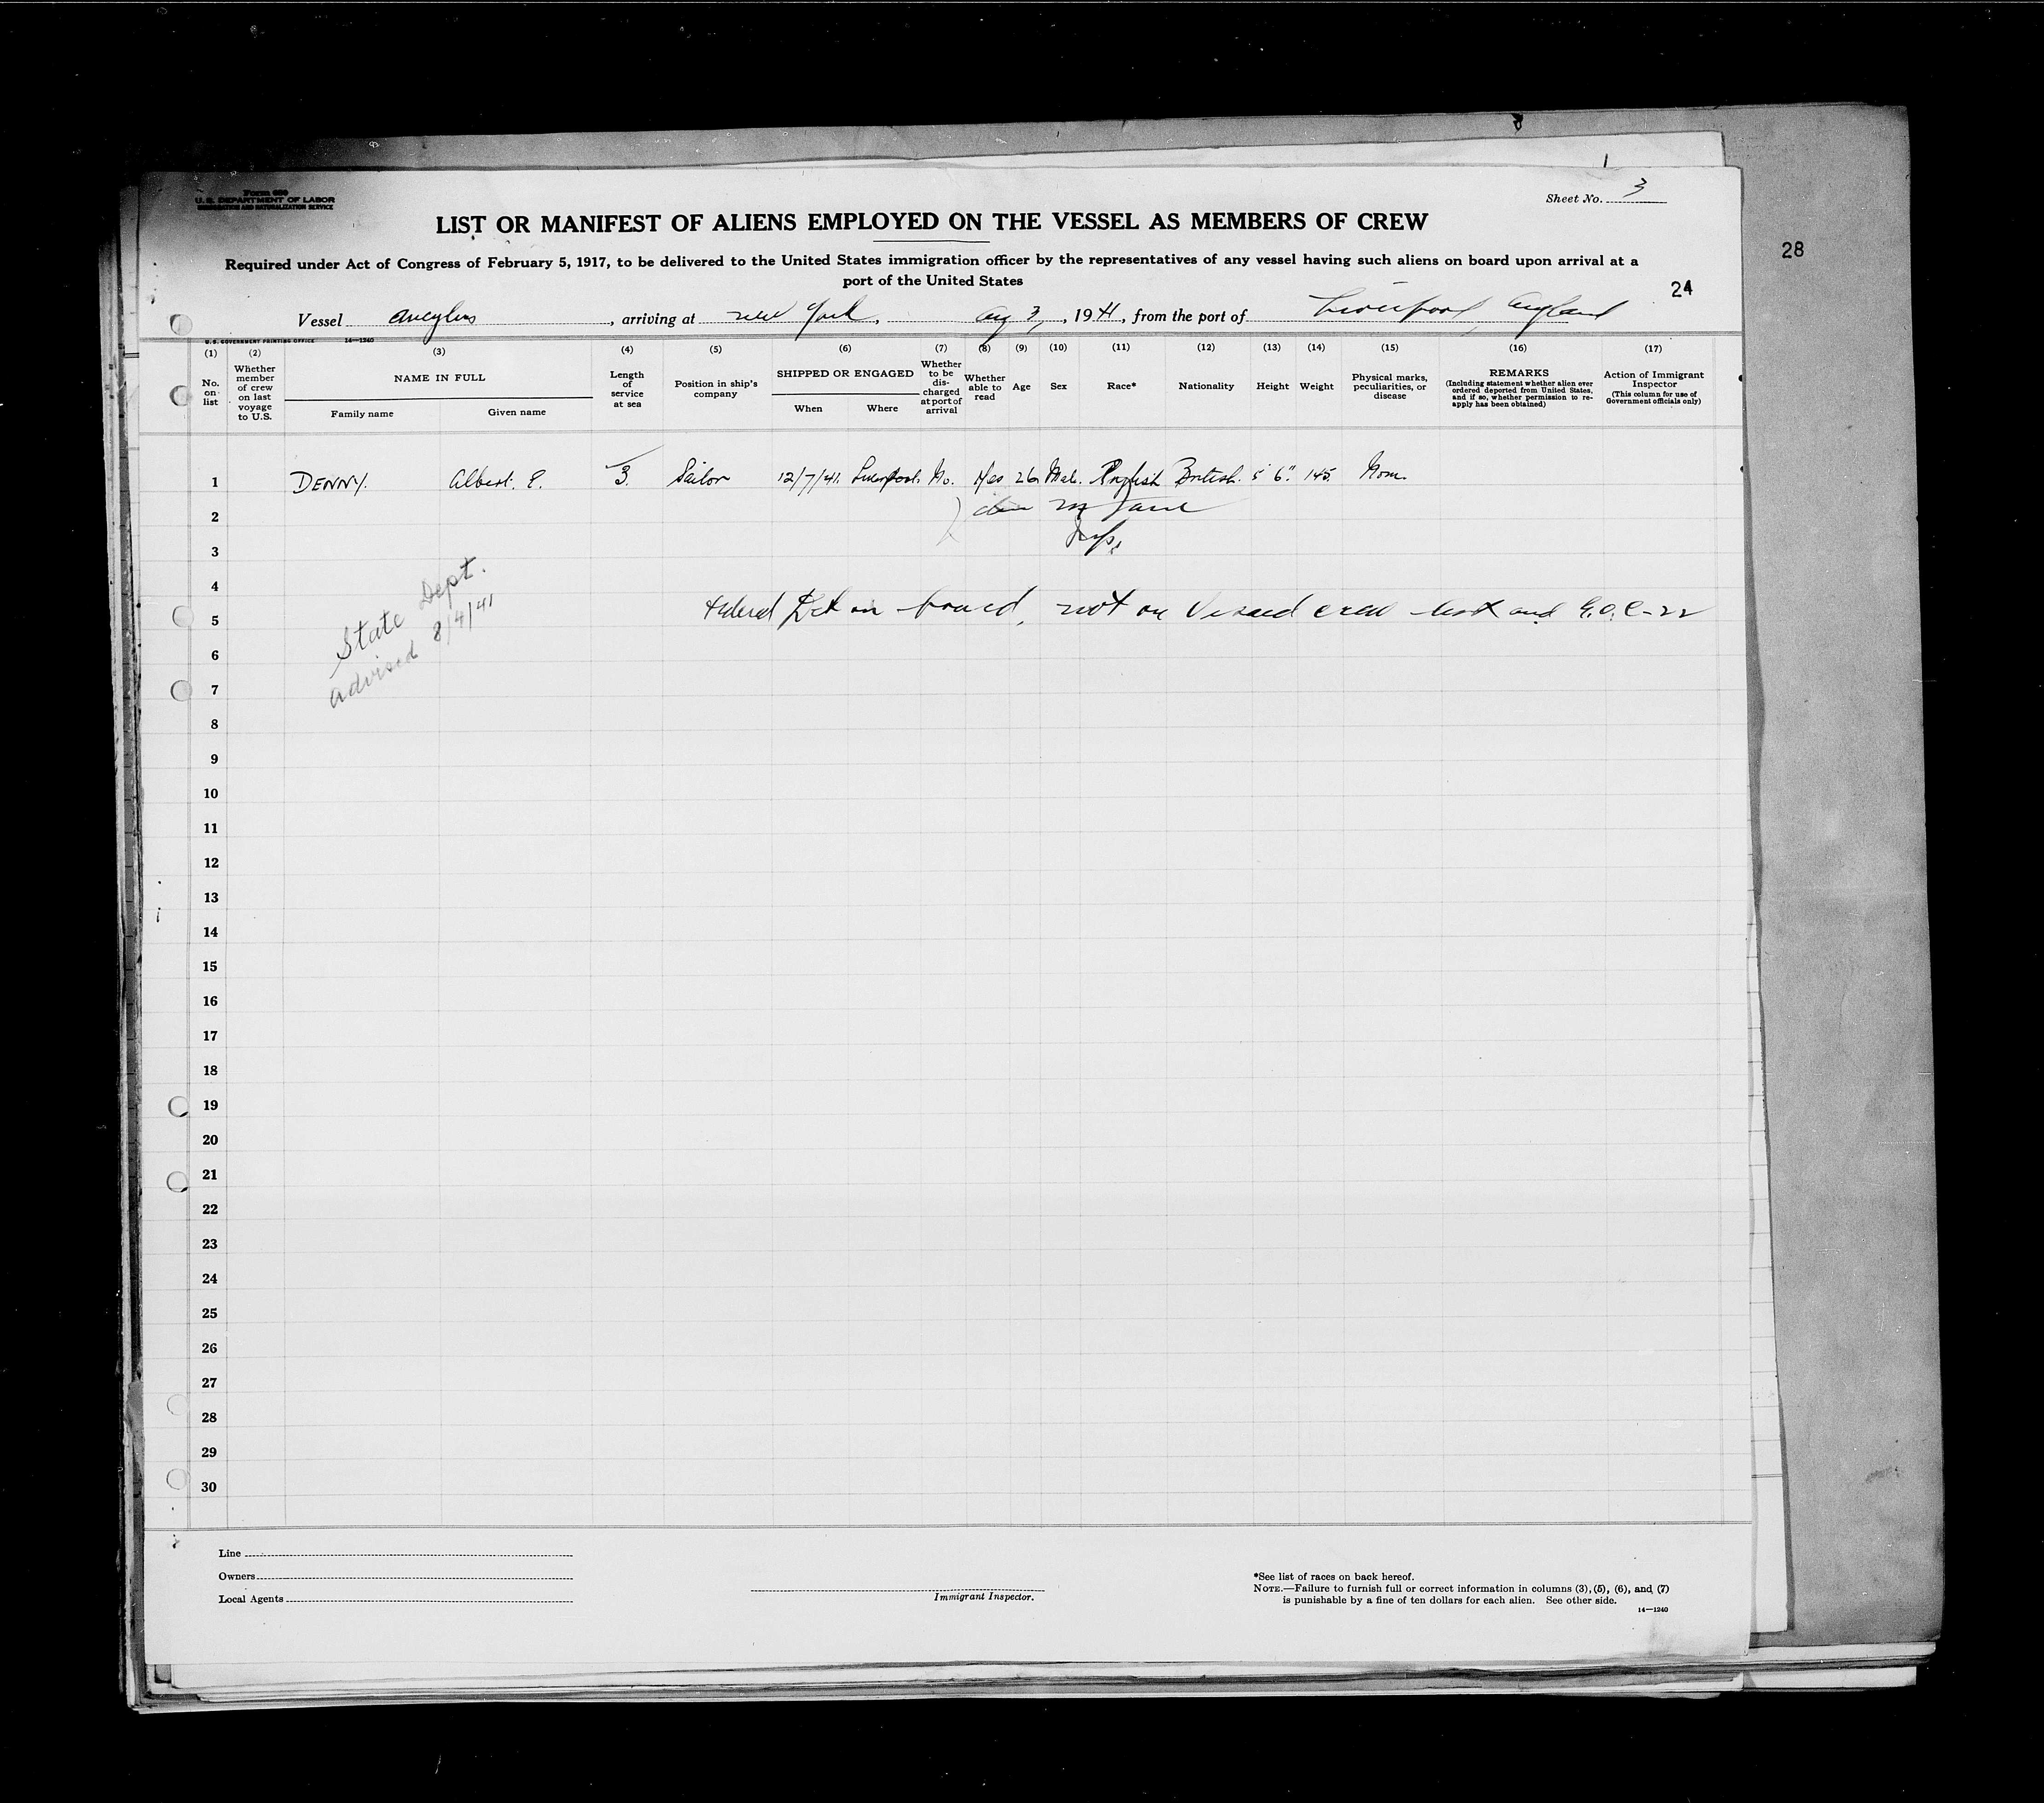 Form 680
U. S. DEPARTMENT OF LABOR
IMMIGRATION AND NATURALIZATION SERVICE
Sheet No. 3
LIST OR MANIFEST OF ALIENS EMPLOYED ON THE VESSEL AS MEMBERS OF CREW
28
Required under Act of Congress of February 5, 1917, to be delivered to the United States immigration officer by the representatives of any vessel having such aliens on board upon arrival at a
port of the United States
24
Vessel, arriving at new York, Aug 3, 1941, from the port of Liverpool, England
U. S. GOVERNMENT PRINTING OFFICE 14—1240
(1) (2) (3) (4) (5) (6) (7) (8) (9) (10) (11) (12) (13) (14) (15) (16) (17)
No. on list
Whether member of crew on last voyage to U.S.
NAME IN FULL
Family name Given name
Length of service at sea
Position in ship's company
SHIPPED OR ENGAGED
When Where
Whether to be discharged at port of arrival
Whether able to read
Age
Sex
Race*
Nationality
Height
Weight
Physical marks, peculiarities, or disease
REMARKS
(Including statement whether alien ever ordered deported from United States, and if so, whether permission to reapply has been obtained)
Action of Immigrant Inspector
(This column for use of Government officials only)
1 DENNY. Albert. E. 3 Sailor 12/7/41. Liverpool. No. Yes 26 Male. English British. 5' 6". 145.
2
3 Insp.
4
5 on board, not on Vessel crew list and
State Dept.
advised 8/4/41
6
7
8
9
10
11
12
13
14
15
16
17
18
19
20
21
22
23
24
25
26
27
28
29
30
Line
Owners
Local Agents
Immigrant Inspector.
*See list of races on back hereof.
NOTE.—Failure to furnish full or correct information in columns (3), (5), (6), and (7)
is punishable by a fine of ten dollars for each alien. See other side.
14—1240